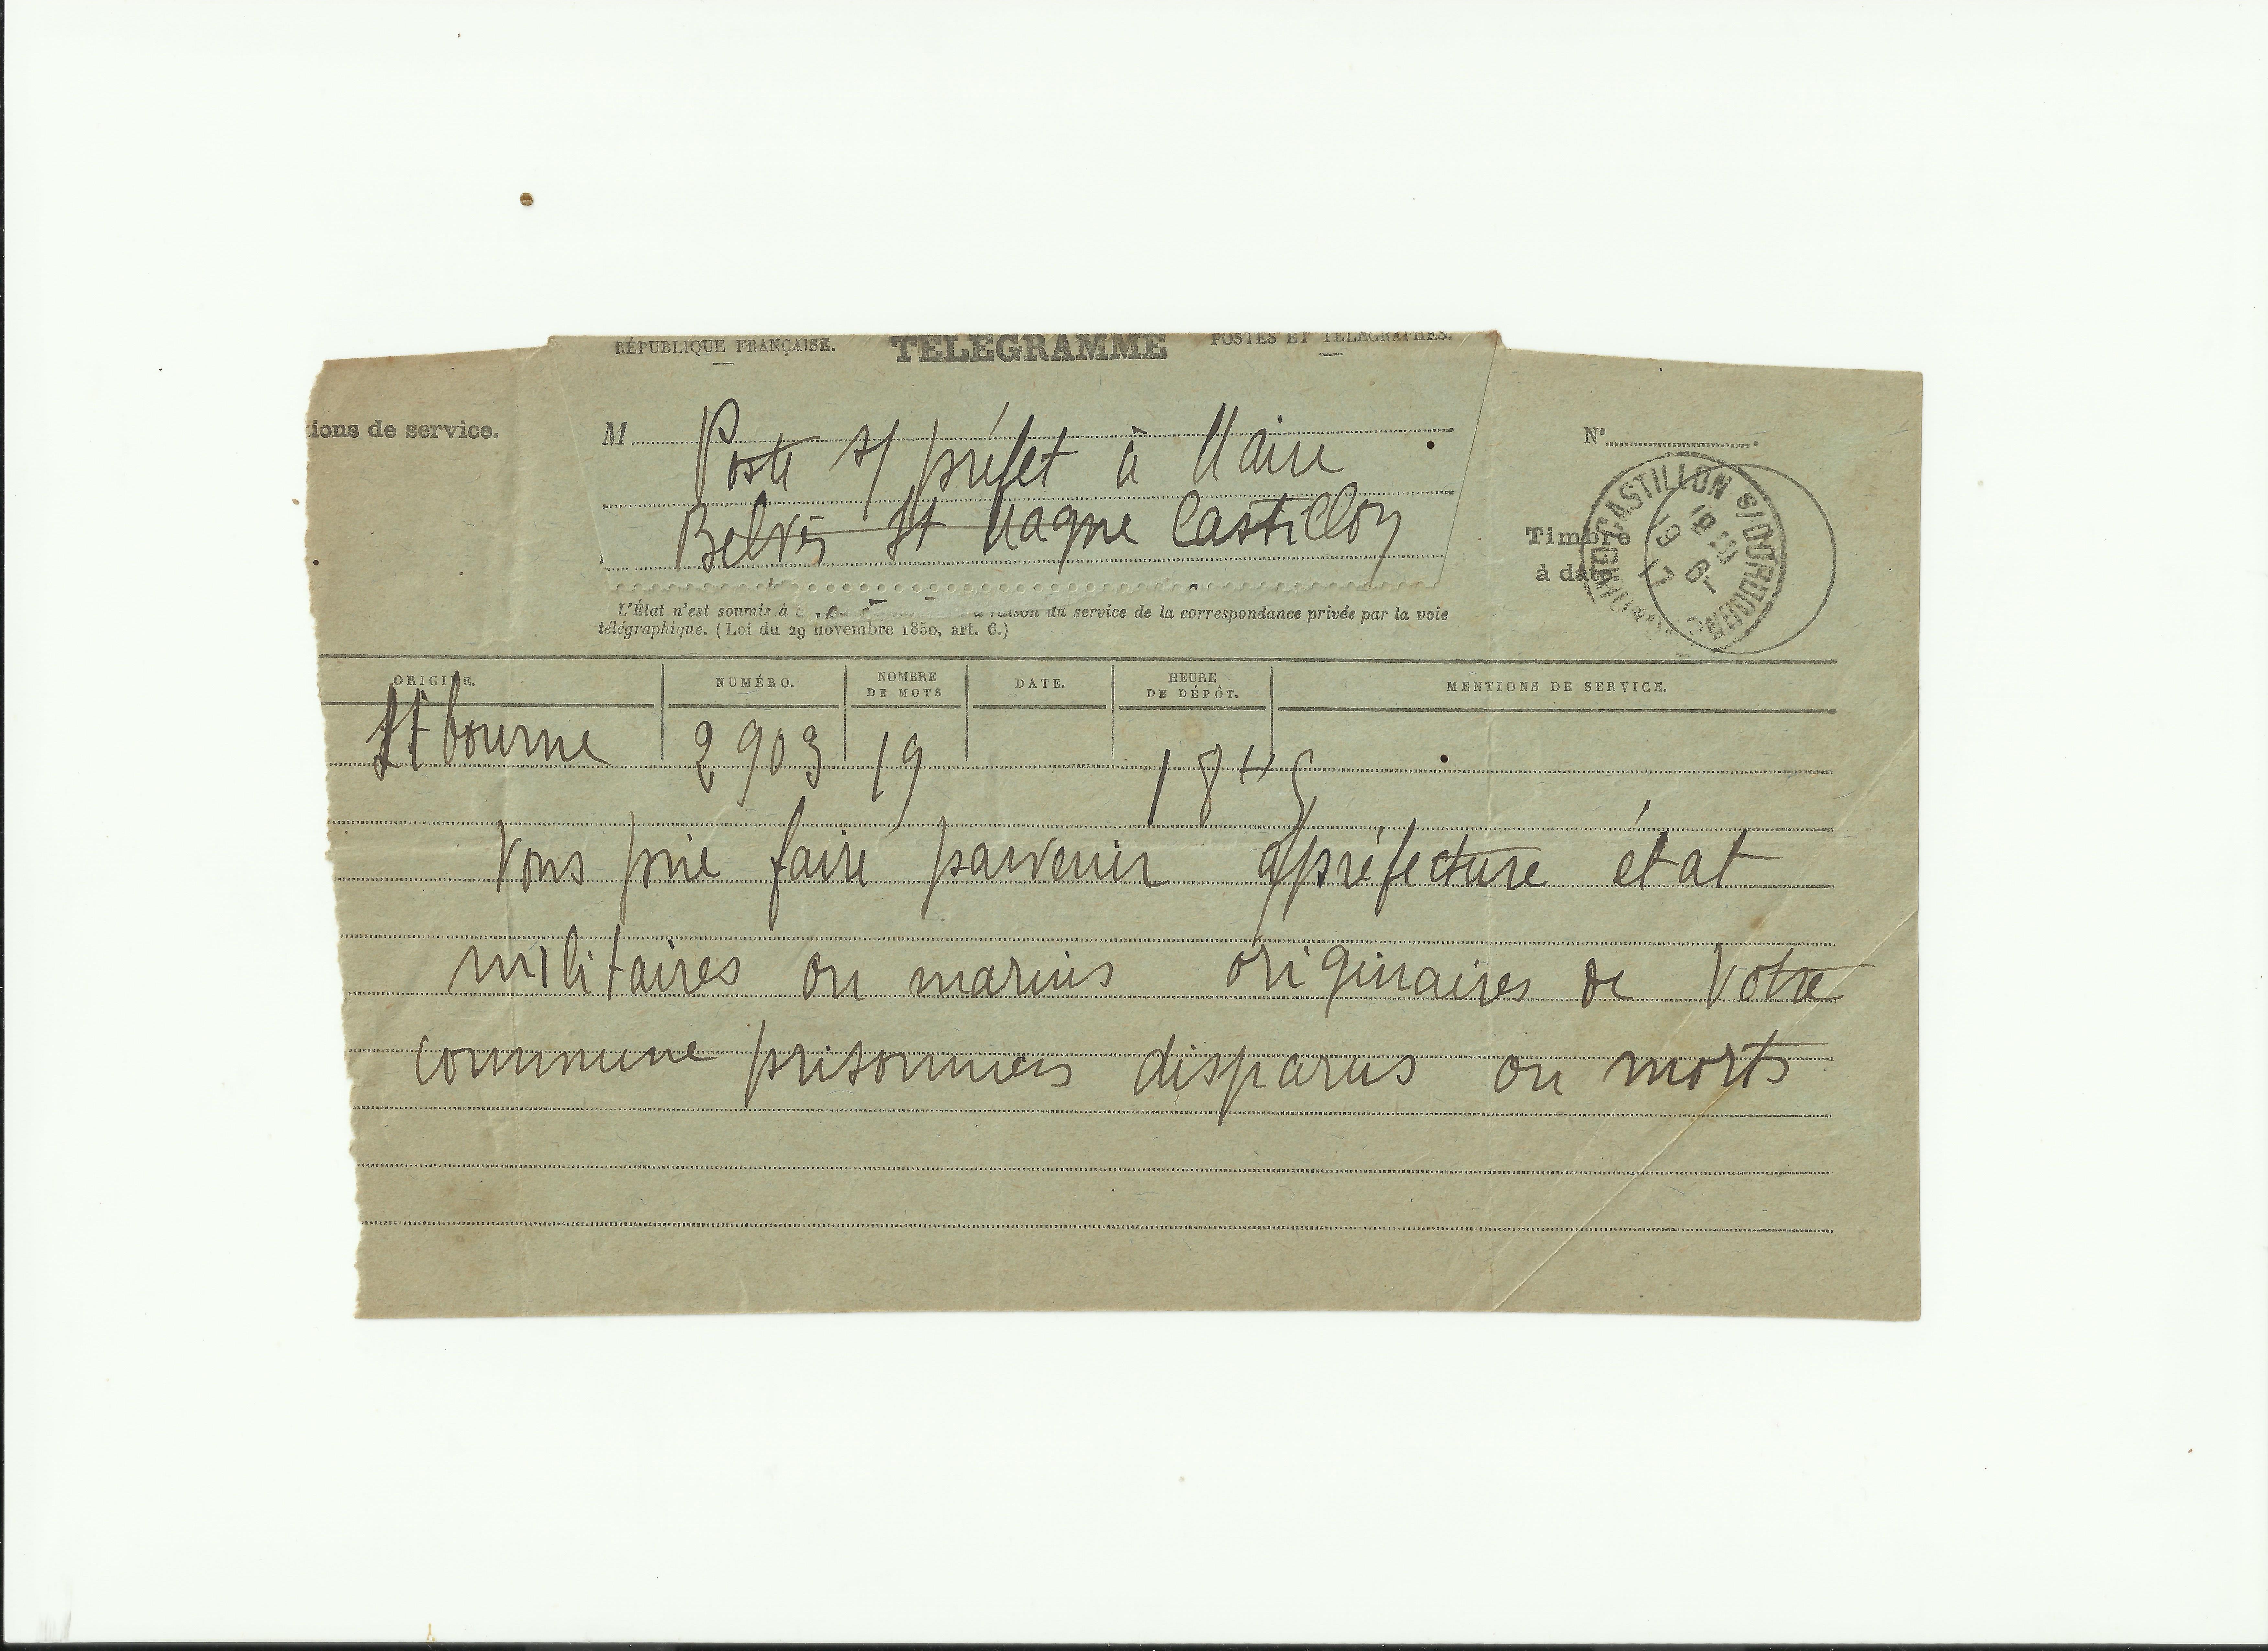 RÉPUBLIQUE FRANÇAISE. TÉLÉGRAMME POSTES ET TÉLÉGRAPHES.
ions de service.
M Poste s/ préfet à Maire
Belvès St Magne Castillon
N°
Timbre
à date
CASTILLON S/DORDOGNE
L'État n'est soumis à raison du service de la correspondance privée par la voie
télégraphique. (Loi du 29 novembre 1850, art. 6.)
ORIGINE. NUMÉRO. NOMBRE DE MOTS DATE. HEURE DE DÉPÔT. MENTIONS DE SERVICE.
bourne 2903 19
Vous prie faire parvenir s/préfecture état
militaires ou marins originaires de votre
commune prisonniers disparus ou morts